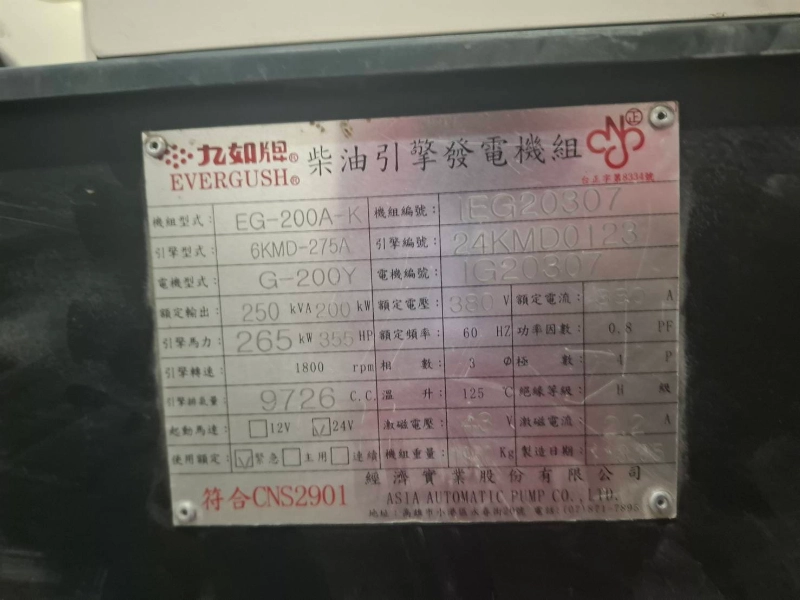 九如牌® 柴油引擎發電機組
EVERGUSH® 台正字第8334號
機組型式： EG-200A-K 機組編號： IEG20307
引擎型式： 6KMD-275A 引擎編號： 24KMD0123
電機型式： G-200Y 電機編號： IG20307
額定輸出： 250 kVA 200 kW 額定電壓： 380 V 額定電流： A
引擎馬力： 265 kW 355 HP 額定頻率： 60 HZ 功率因數： 0.8 PF
引擎轉速： 1800 rpm 相數： 3 Ø 極數： 4 P
引擎排氣量： 9726 C.C. 溫升： 125 ℃ 絕緣等級： H 級
起動馬達： 12V 24V 激磁電壓： 43 V 激磁電流： 2.2 A
使用額定： 緊急 主用 連續 機組重量： Kg 製造日期：
經濟實業股份有限公司
符合CNS2901 ASIA AUTOMATIC PUMP CO., LTD.
地址：高雄市小港區 20號 電話：(07)871-7895